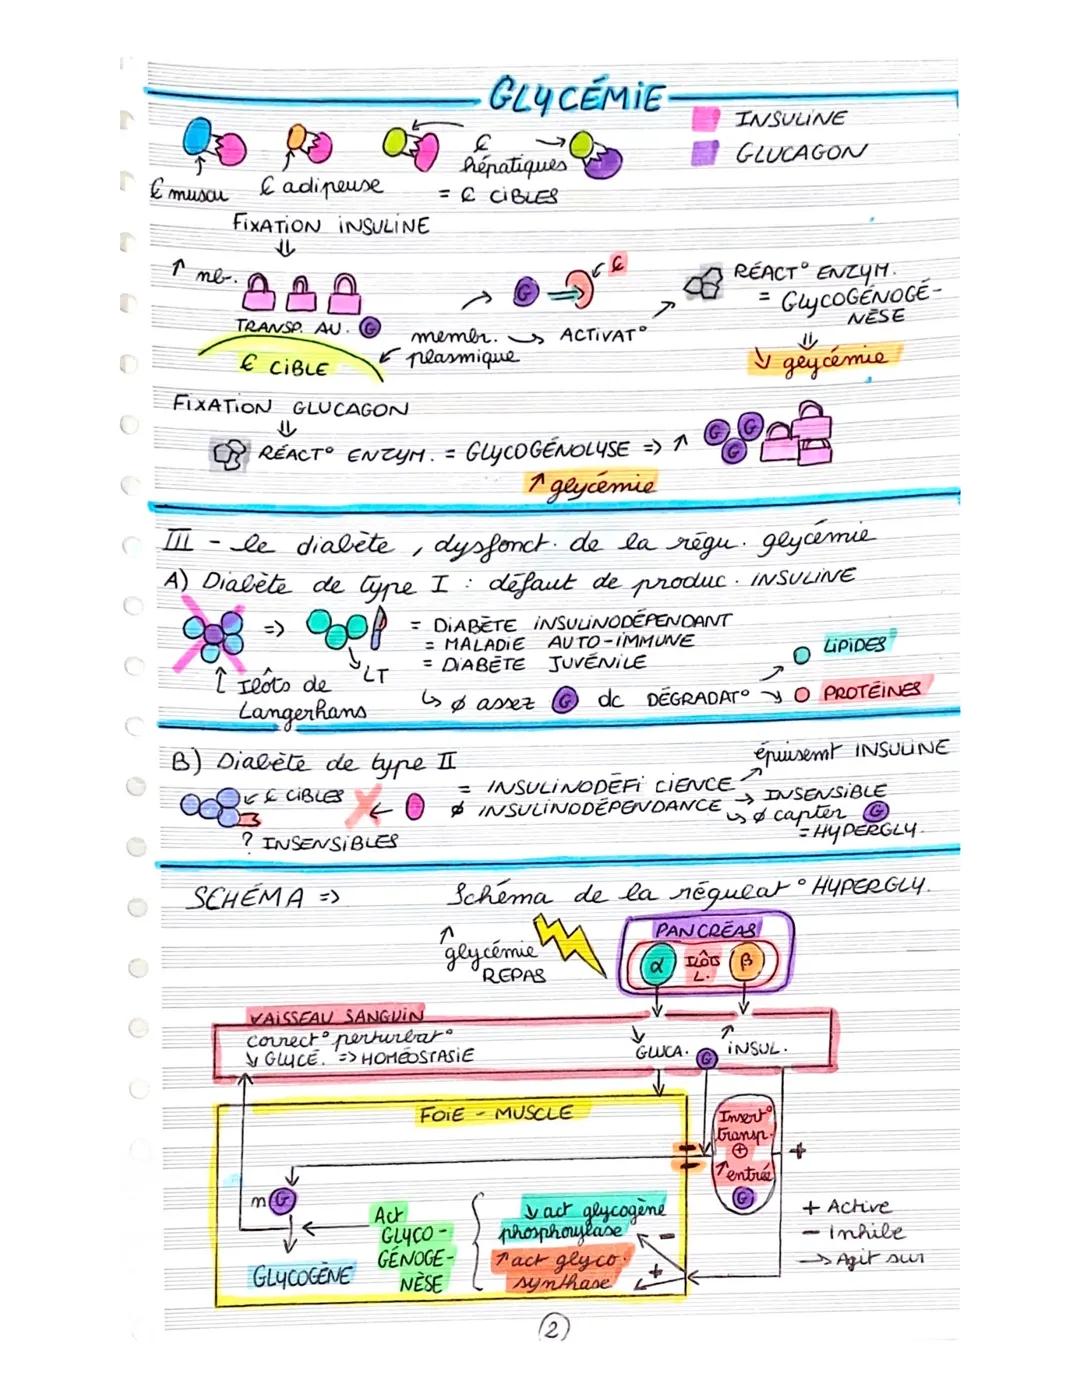 GLYCÉMIE
INSULINE
GLUCAGON
₢ muscu
₢ adipeuse
₢ hépatiques
= ₢ CIBLES
FIXATION INSULINE
⇓
↑ nb.
TRANSP. AU. G
₢ CIBLE
membr. plasmique
G
₢
→ ACTIVAT°
RÉACT° ENZYM.
= GLYCOGÉNOGÉ-
NÈSE
⇓
↓ glycémie
FIXATION GLUCAGON
⇓
RÉACT° ENZYM. = GLYCOGÉNOLYSE => ↑ G G G
↑ glycémie
III - le diabète, dysfonct. de la régu. glycémie
A) Diabète de type I : défaut de produc. INSULINE
=>
↑ Ilôts de
Langerhans
LT
= DIABÈTE INSULINODÉPENDANT
= MALADIE AUTO-IMMUNE
= DIABÈTE JUVÉNILE
↳ ∅ assez G dc DÉGRADAT°
LIPIDES
PROTÉINES
B) Diabète de type II
₢ CIBLES
? INSENSIBLES
= INSULINODÉFI CIENCE
épuisemt INSULINE
∅ INSULINODÉPENDANCE → INSENSIBLE
↳ ∅ capter G
= HYPERGLY.
SCHÉMA =>
Schéma de la régulat° HYPERGLY.
↑
glycémie
REPAS
PANCRÉAS
α ILÔTS L. β
VAISSEAU SANGUIN
correct° perturbat°
↓ GLYCÉ. => HOMÉOSTASIE
↓
GLUCA.
G
↑
INSUL.
FOIE - MUSCLE
Insert°
transp.
+
↑ entrée
G
+
n G
GLYCOGÈNE
Act
GLYCO-
GÉNOGE-
NÈSE
↓ act glycogène
phosphorylase
-
↑ act glyco.
synthase
+
+ Active
- Inhibe
→ Agit sur
2